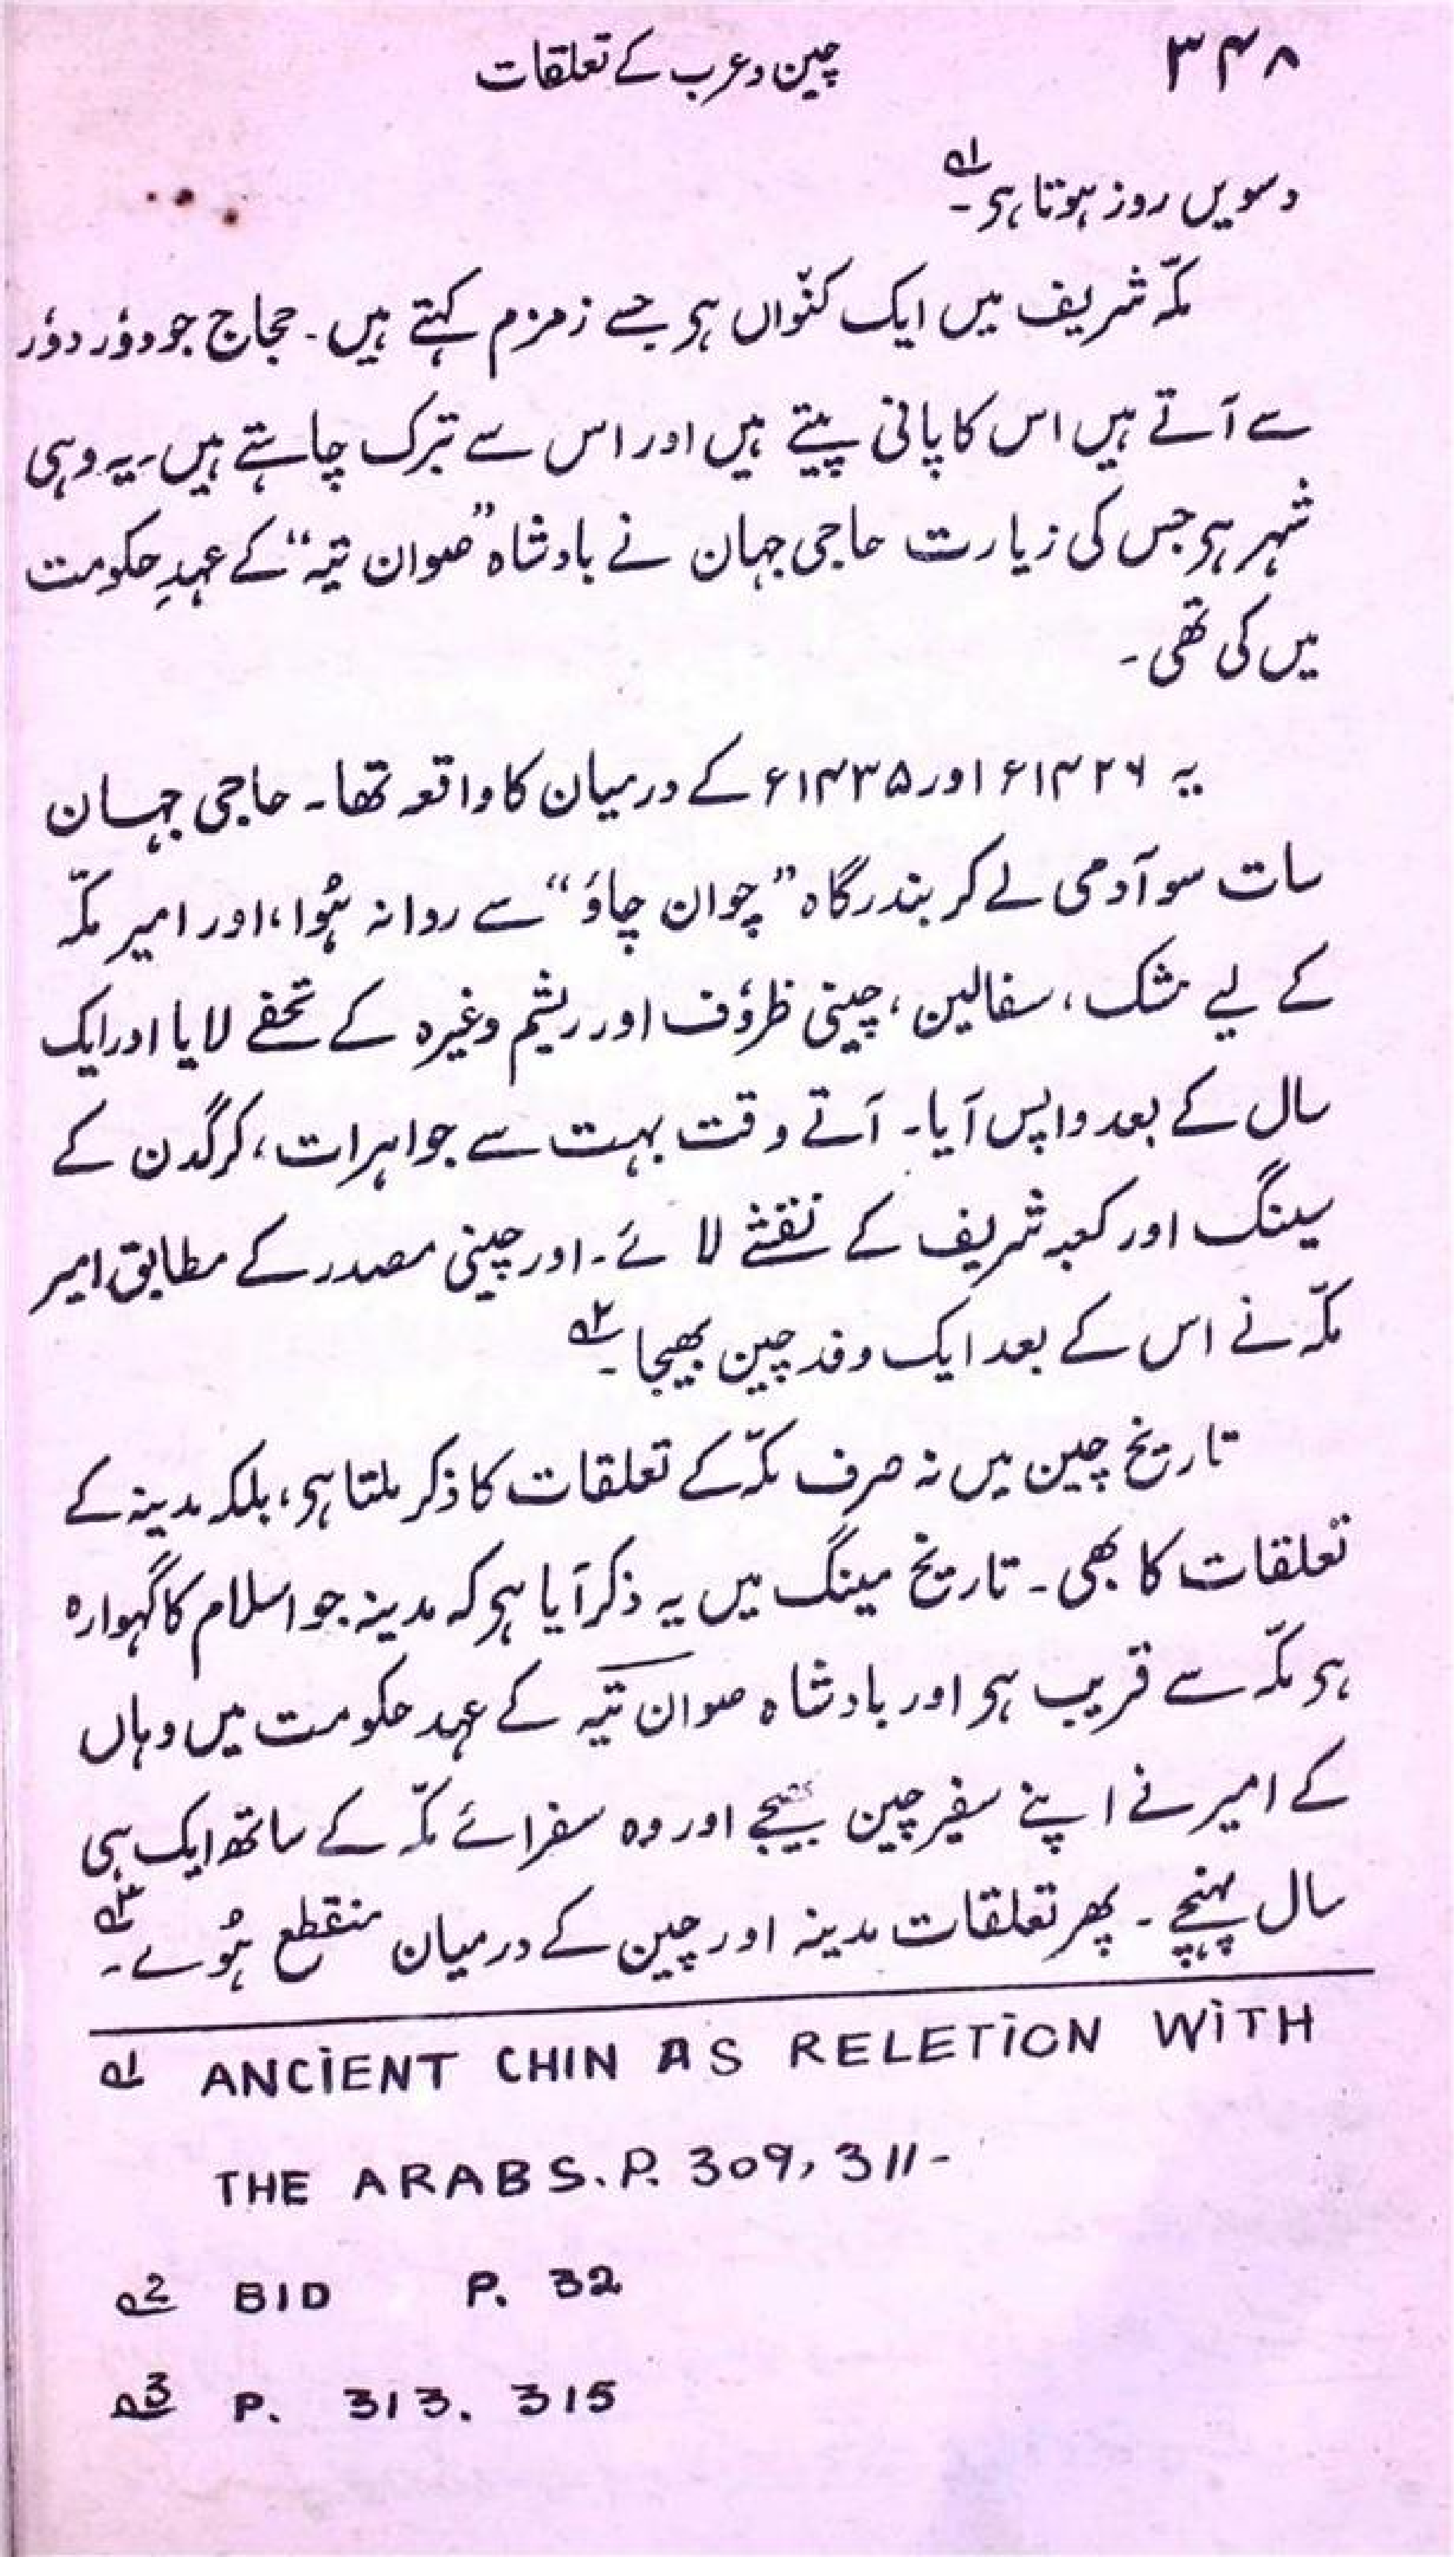 ۳۴۸ چین و عرب کے تعلقات
دسویں روز ہوتا ہی۔ؔ۱
مکّہ شریف میں ایک کنْواں ہی جسے زمزم کہتے ہیں۔ حجاج جو دوٗر دوٗر
سے آتے ہیں اس کا پانی پیتے ہیں اور اس سے تبرک چاہتے ہیں۔ یہ وہی
شہر ہی جس کی زیارت حاجی جہان نے بادشاہ ”صوان تیہ“ کے عہدِ حکومت
میں کی تھی۔
یہ ۱۴۲۶ء اور ۱۴۳۵ء کے درمیان کا واقعہ تھا۔ حاجی جہان
سات سو آدمی لے کر بندرگاہ ”چوان چاؤ“ سے روانہ ہُوا، اور امیر مکّہ
کے لیے مشک، سفالین، چینی ظروٗف اور ریشم وغیرہ کے تحفے لایا اور ایک
سال کے بعد واپس آیا۔ آتے وقت بہت سے جواہرات، کرگدن کے
سینگ اور کعبہ شریف کے نقشے لائے۔ اور چینی مصدر کے مطابق امیر
مکّہ نے اس کے بعد ایک وفد چین بھیجا۔ؔ۲
تاریخ چین میں نہ صرف مکّہ کے تعلقات کا ذکر ملتا ہی، بلکہ مدینہ کے
تعلقات کا بھی۔ تاریخ مینگ میں یہ ذکر آیا ہی کہ مدینہ جو اسلام کا گہوارہ
ہی مکّہ سے قریب ہی اور بادشاہ صوان تیہ کے عہد حکومت میں وہاں
کے امیر نے اپنے سفیر چین بھیجے اور وہ سفرائے مکّہ کے ساتھ ایک ہی
سال پہنچے۔ پھر تعلقات مدینہ اور چین کے درمیان منقطع ہُوئے۔ؔ۳
ؔ1 ANCIENT CHIN AS RELETION WITH
THE ARABS. P. 309, 311-
ؔ2 BID P. 32
ؔ3 P. 313. 315